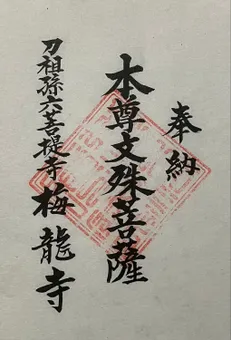 奉納
本尊文殊菩薩
刀祖孫六菩提寺 梅龍寺